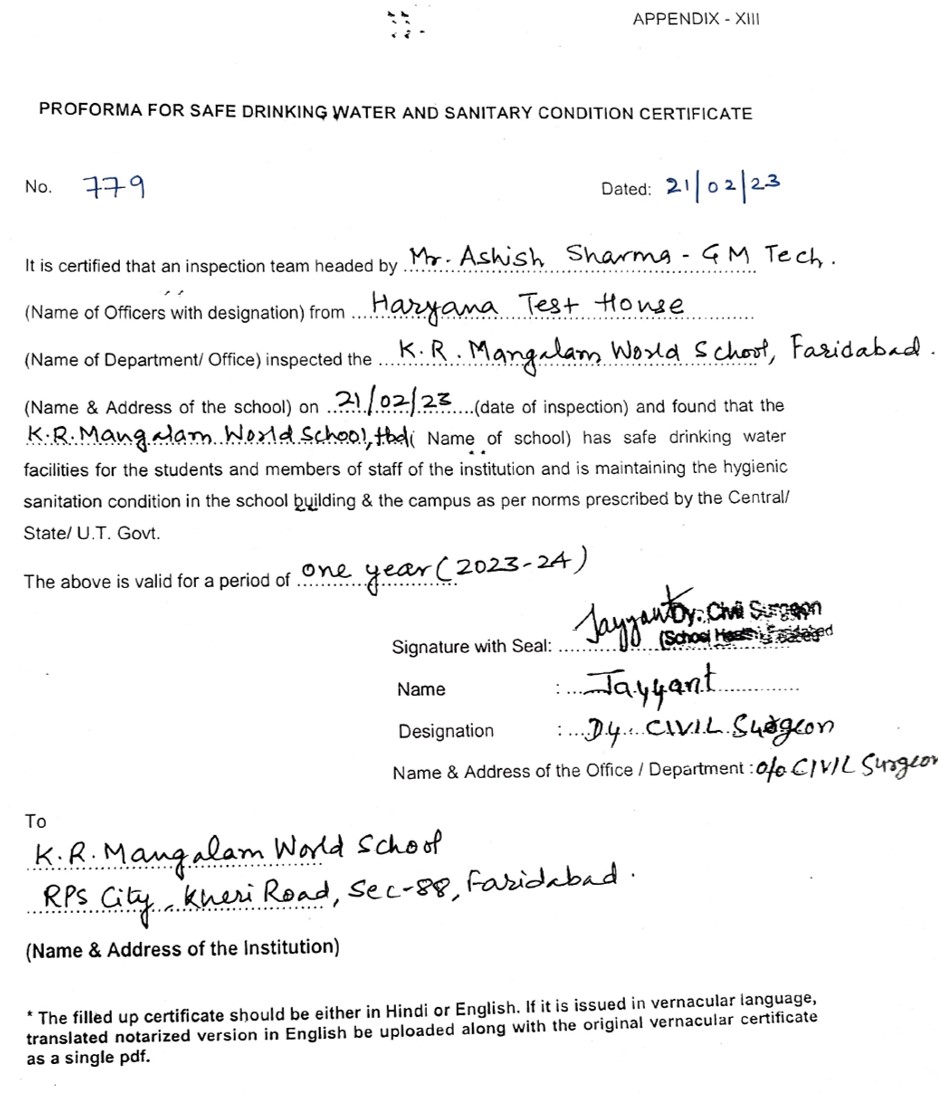 APPENDIX - XIII
PROFORMA FOR SAFE DRINKING WATER AND SANITARY CONDITION CERTIFICATE
No. 779 Dated: 21/02/23
It is certified that an inspection team headed by Mr. Ashish Sharma - GM Tech.
(Name of Officers with designation) from Haryana Test House
(Name of Department/ Office) inspected the K.R. Mangalam World School, Faridabad.
(Name & Address of the school) on 21/02/23 (date of inspection) and found that the
K.R. Mangalam World School, fbd ( Name of school) has safe drinking water
facilities for the students and members of staff of the institution and is maintaining the hygienic
sanitation condition in the school building & the campus as per norms prescribed by the Central/
State/ U.T. Govt.
The above is valid for a period of one year (2023-24)
Dy. Civil Surgeon
Signature with Seal: Jayyant (School Health)
Name : Jayyant
Designation : Dy. CIVIL Surgeon
Name & Address of the Office / Department : o/o CIVIL Surgeon
To
K.R. Mangalam World School
RPS City, Kheri Road, Sec-88, Faridabad.
(Name & Address of the Institution)
* The filled up certificate should be either in Hindi or English. If it is issued in vernacular language,
translated notarized version in English be uploaded along with the original vernacular certificate
as a single pdf.